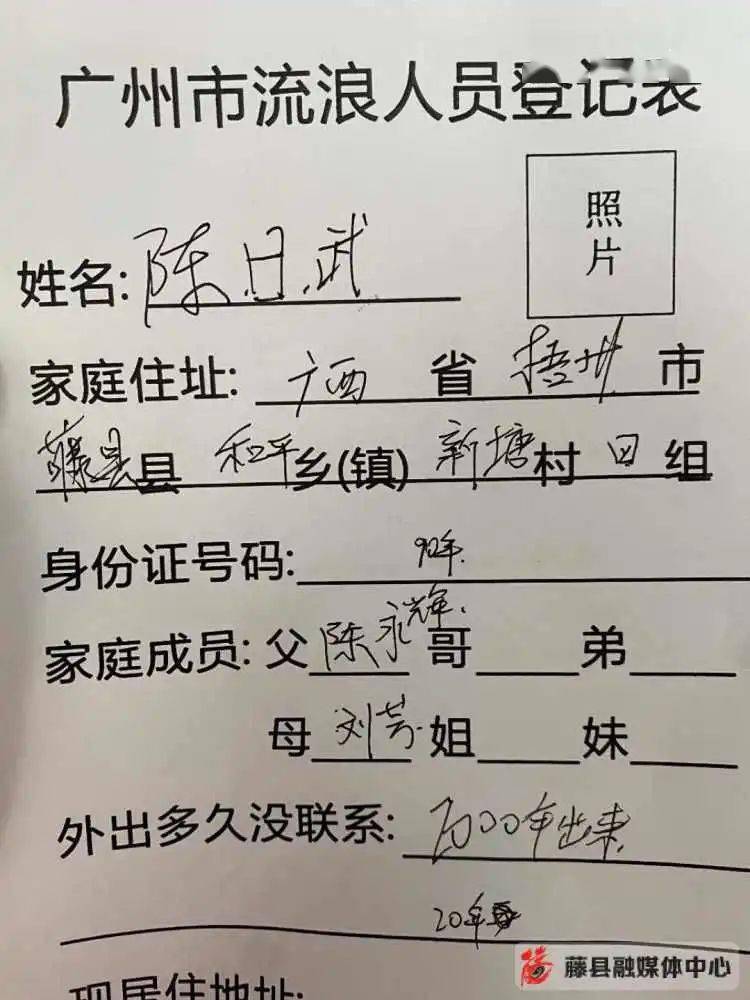 广州市流浪人员登记表
照片
姓名: 陈日武
家庭住址: 广西 省 梧州 市
藤县县 和平乡(镇) 新塘村 田 组
身份证号码: 90年
家庭成员: 父陈永辉 哥 弟
母刘芳 姐 妹
外出多久没联系: 2000年出来
20年
现居住地址:
藤县融媒体中心